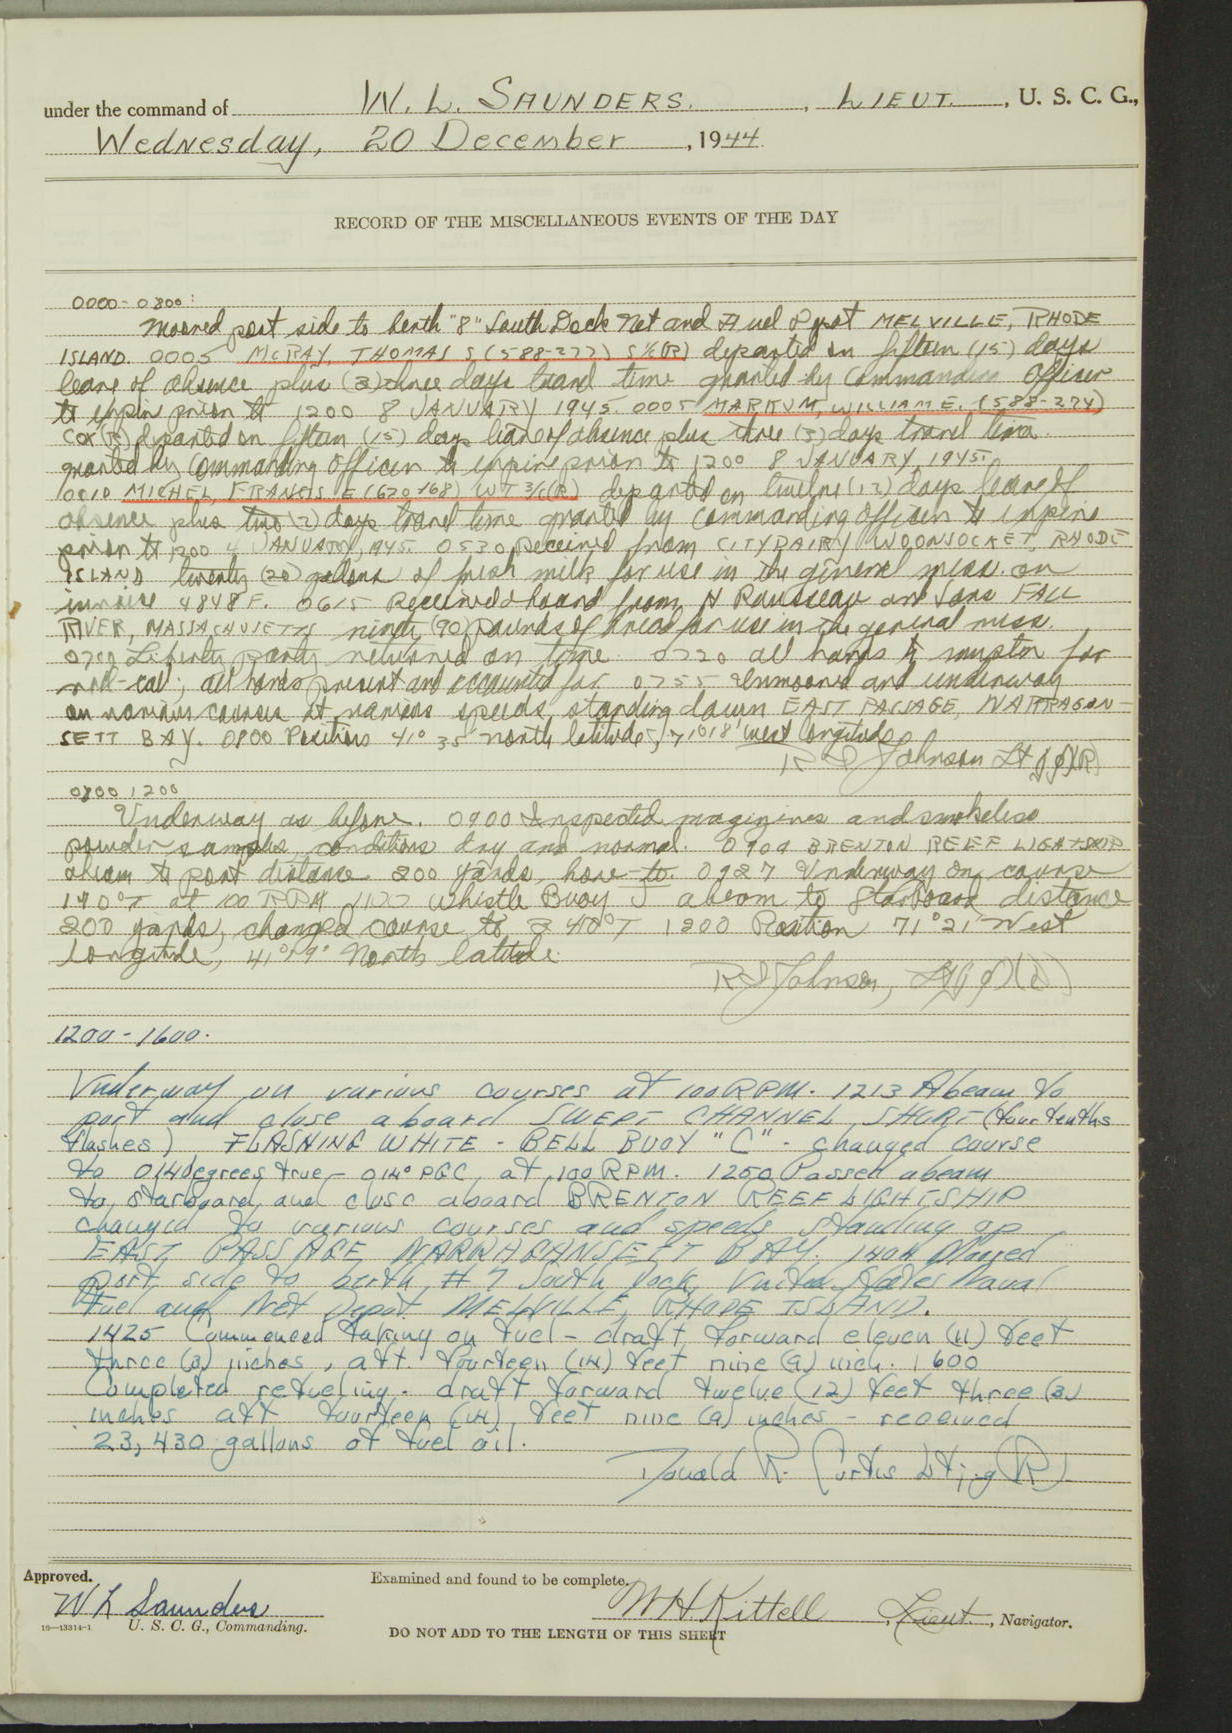 under the command of W. L. SAUNDERS. , LIEUT. , U. S. C. G.,
Wednesday, 20 December , 1944
RECORD OF THE MISCELLANEOUS EVENTS OF THE DAY
0000 - 0800:
Moored port side to berth "8" South Dock Net and Fuel Depot MELVILLE, RHODE
ISLAND. 0005 McRAY, THOMAS S (588-277) S1/c(R) departed on fifteen (15) days
leave of absence plus (3) three days travel time granted by Commanding Officer
to expire prior to 1200 8 JANUARY 1945. 0005 MARKUM, WILLIAM E. (588-274)
COX(R) departed on fifteen (15) days leave of absence plus three (3) days travel time
granted by Commanding Officer to expire prior to 1200 8 JANUARY 1945.
0010 MICHEL, FRANCIS E (620-168) WT 3/c(R) departed on twelve (12) days leave of
absence plus two (2) days travel time granted by Commanding Officer to expire
prior to 1200 4 JANUARY, 1945. 0530 Received from CITY DAIRY WOONSOCKET, RHODE
ISLAND twenty (20) gallons of fresh milk for use in the general mess on
invoice 4848F. 0615 Received aboard from H Rousseau and Sons FALL
RIVER, MASSACHUSETTS ninety (90) pounds of bread for use in the general mess.
0700 Liberty party returned on time. 0720 all hands to muster for
roll-call; all hands present and accounted for 0755 Unmoored and underway
on various courses at various speeds, standing down EAST PASSAGE, NARRAGAN-
SETT BAY. 0800 Position 41° 35' north latitude, 71°18' west longitude
R Johnson Lt jg(R)
0800 1200
Underway as before. 0900 Inspected magazines and smokeless
powder samples, conditions dry and normal. 0909 BRENTON REEF LIGHTSHIP
abeam to port distance 200 yards, hove-to. 0927 Underway on course
190°T at 100 RPM 1122 Whistle Buoy J abeam to Starboard distance
200 yards, changed course to 340°T 1200 Position 71°21' West
longitude, 41°19' North latitude.
R Johnson, Lt jg
1200 - 1600.
Underway on various courses at 100 RPM. 1213 Abeam to
port and close aboard SWEPT CHANNEL SHORT (four tenths
flashes) FLASHING WHITE - BELL BUOY "C" - changed course
to 014 degrees true - 014° PGC, at 100 RPM. 1250 Passed abeam
to starboard and close aboard BRENTON REEF LIGHTSHIP
changed to various courses and speeds standing up
EAST PASSAGE NARRAGANSETT BAY. 1404 Moored
port side to berth # 7 South Dock, United States Naval
Fuel and Net Depot MELVILLE, RHODE ISLAND.
1425 Commenced taking on fuel - draft forward eleven (11) feet
three (3) inches, aft. fourteen (14) feet nine (9) inch. 1600
Completed refueling. draft forward twelve (12) feet three (3)
inches aft fourteen (14) feet nine (9) inches - received
23,430 gallons of fuel oil.
Donald R. Curtis Lt j.g (R)
Approved.
Examined and found to be complete.
W L Saunders
W H Kittell , Lieut , Navigator.
16—13314-1 U. S. C. G., Commanding.
DO NOT ADD TO THE LENGTH OF THIS SHEET